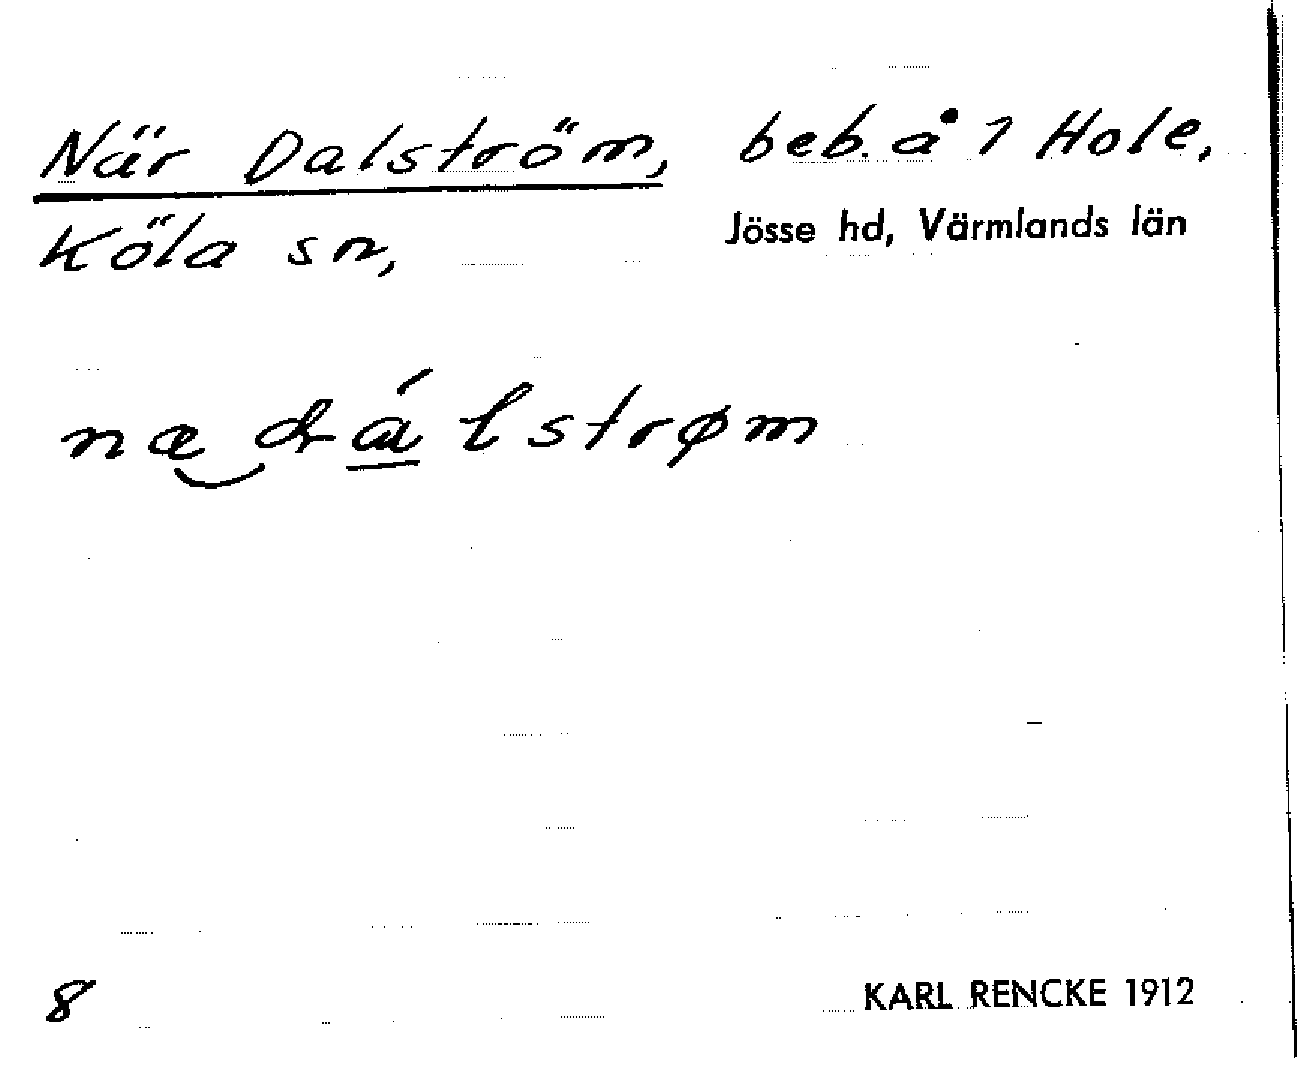 När Dalström, beb. å 1 Hole,
Köla sn, Jösse hd, Värmlands län
næ‿dálstrøm
8 KARL RENCKE 1912